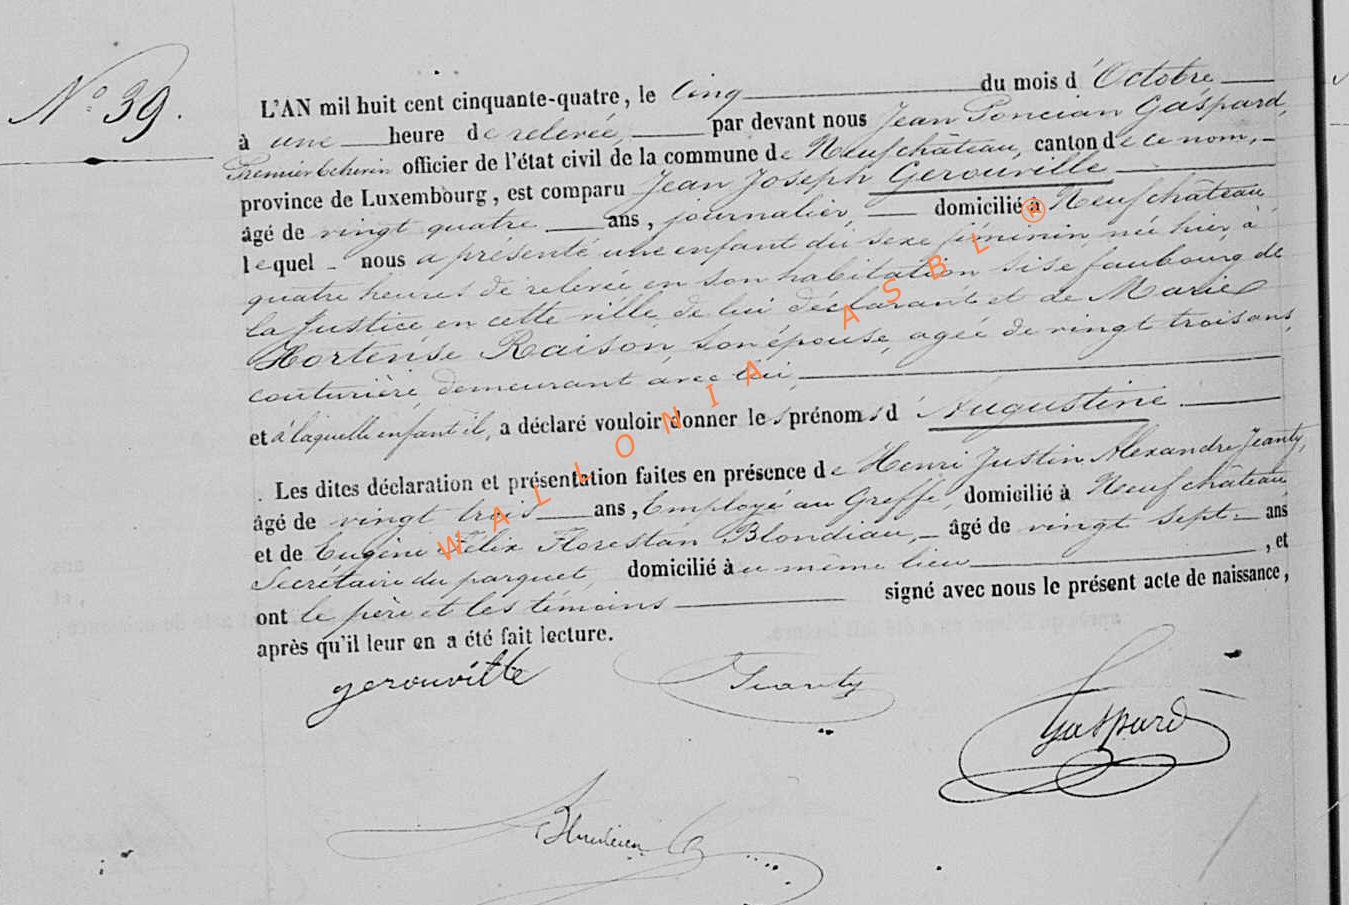 N° 39.
L'AN mil huit cent cinquante-quatre, le Cinq du mois d'Octobre
à une heure de relevée, par devant nous Jean Poncian Gaspard,
Premier Echevin officier de l'état civil de la commune de Neufchâteau, canton de ce nom,
province de Luxembourg, est comparu Jean Joseph Gerouville
âgé de vingt quatre ans, journalier, domicilié à Neufchâteau
lequel nous a présenté une enfant du sexe féminin, née hier, à
quatre heures de relevée en son habitation sise faubourg de
la Justice en cette ville, de lui déclarant et de Marie
Hortense Raison, son épouse, agée de vingt trois ans,
couturière demeurant avec lui,
et à laquelle enfant il, a déclaré vouloir donner les prénoms d'Augustine
Les dites déclaration et présentation faites en présence de Henri Justin Alexandre Jeanty,
âgé de vingt trois ans, Employé au Greffe, domicilié à Neufchâteau
et de Eugène Félix Florestan Blondiau, âgé de vingt sept ans
Secrétaire du parquet, domicilié au même lieu, et
ont le père et les témoins signé avec nous le présent acte de naissance,
après qu'il leur en a été fait lecture.
gerouville
Jeanty
Gaspard
WALLONIA ASBL ®